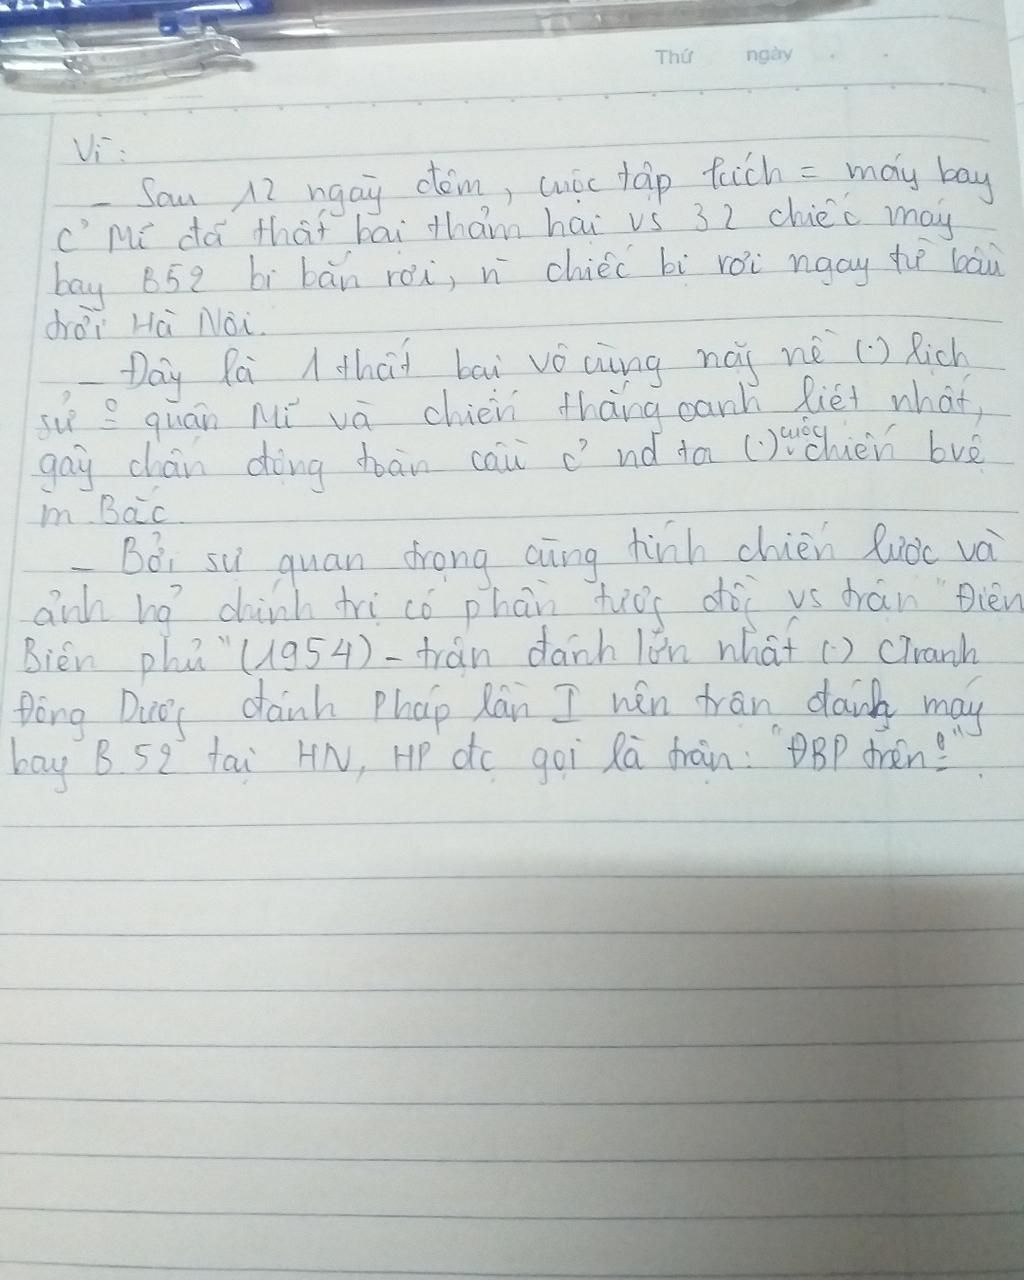 Thứ ngày
Vì:
- Sau 12 ngày đêm, cuộc tập kích = máy bay
c' Mĩ đã thất bại thảm hại vs 32 chiếc máy
bay B52 bị bắn rơi, n` chiếc bị rơi ngay từ bầu
trời Hà Nội.
- Đây là 1 thất bại vô cùng nặng nề (.) lịch
sử quân Mĩ và chiến thắng oanh liệt nhất,
gây chấn động toàn cầu c' nd ta (.) cuộc chiến bvệ
m. Bắc.
- Bởi sự quan trọng cùng tính chiến lược và
ảnh hg' chính trị có phần tương đối vs trận "Điện
Biên phủ" (1954) - trận đánh lớn nhất (.) cTranh
Đông Dương đánh Pháp lần I nên trận đánh máy
bay B.52 tại HN, HP đc gọi là trận: "ĐBP trên".